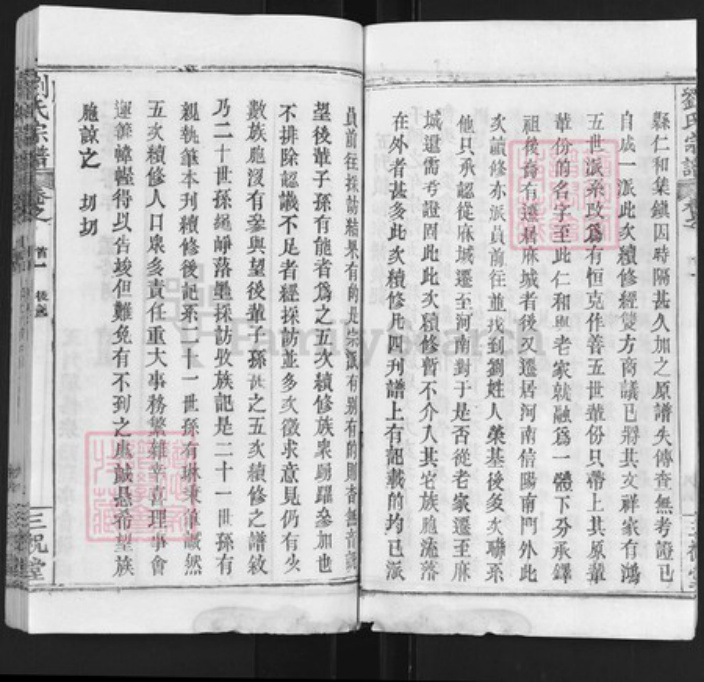 縣仁和集鎮因時隔甚久加之原譜失傳查無考證已
自成一派此次續修經雙方商議已將其文祥家有鴻
五世派系改為有恒克作善五世輩份只帶上其原輩
輩份的名字至此仁和與老家就融為一體下分承鐸
祖後裔有遷居麻城者後又遷居河南信陽南門外此
次續修亦派員前往並找到劉姓人榮基後多次聯系
他只承認從麻城遷至河南對于是否從老家遷至麻
城還需考證因此此次續修暫不介入其它族胞流落
在外者甚多此次續修凡四刊譜上有記載的均已派
劉氏宗譜
員前往採訪結果有的是宗派有别有的則查無音訊
望後輩子孫有能者為之五次續修族衆踴躍參加也
不排除認識不足者經採訪並多次徵求意見仍有少
數族胞沒有參與望後輩子孫 之五次續修之譜敘
乃二十世孫繩崢落墨採訪 族記是二十一世孫有
親執筆本刊續修後記系二十一世孫有琳 然
五次續修人口衆多責任重大事務繁雜幸 理事會
運籌幃幄得以告竣但難免有不到之處誠懇希望族
胞諒之 切切
劉氏宗譜
卷之
首一
後
三祝堂
FamilySearch